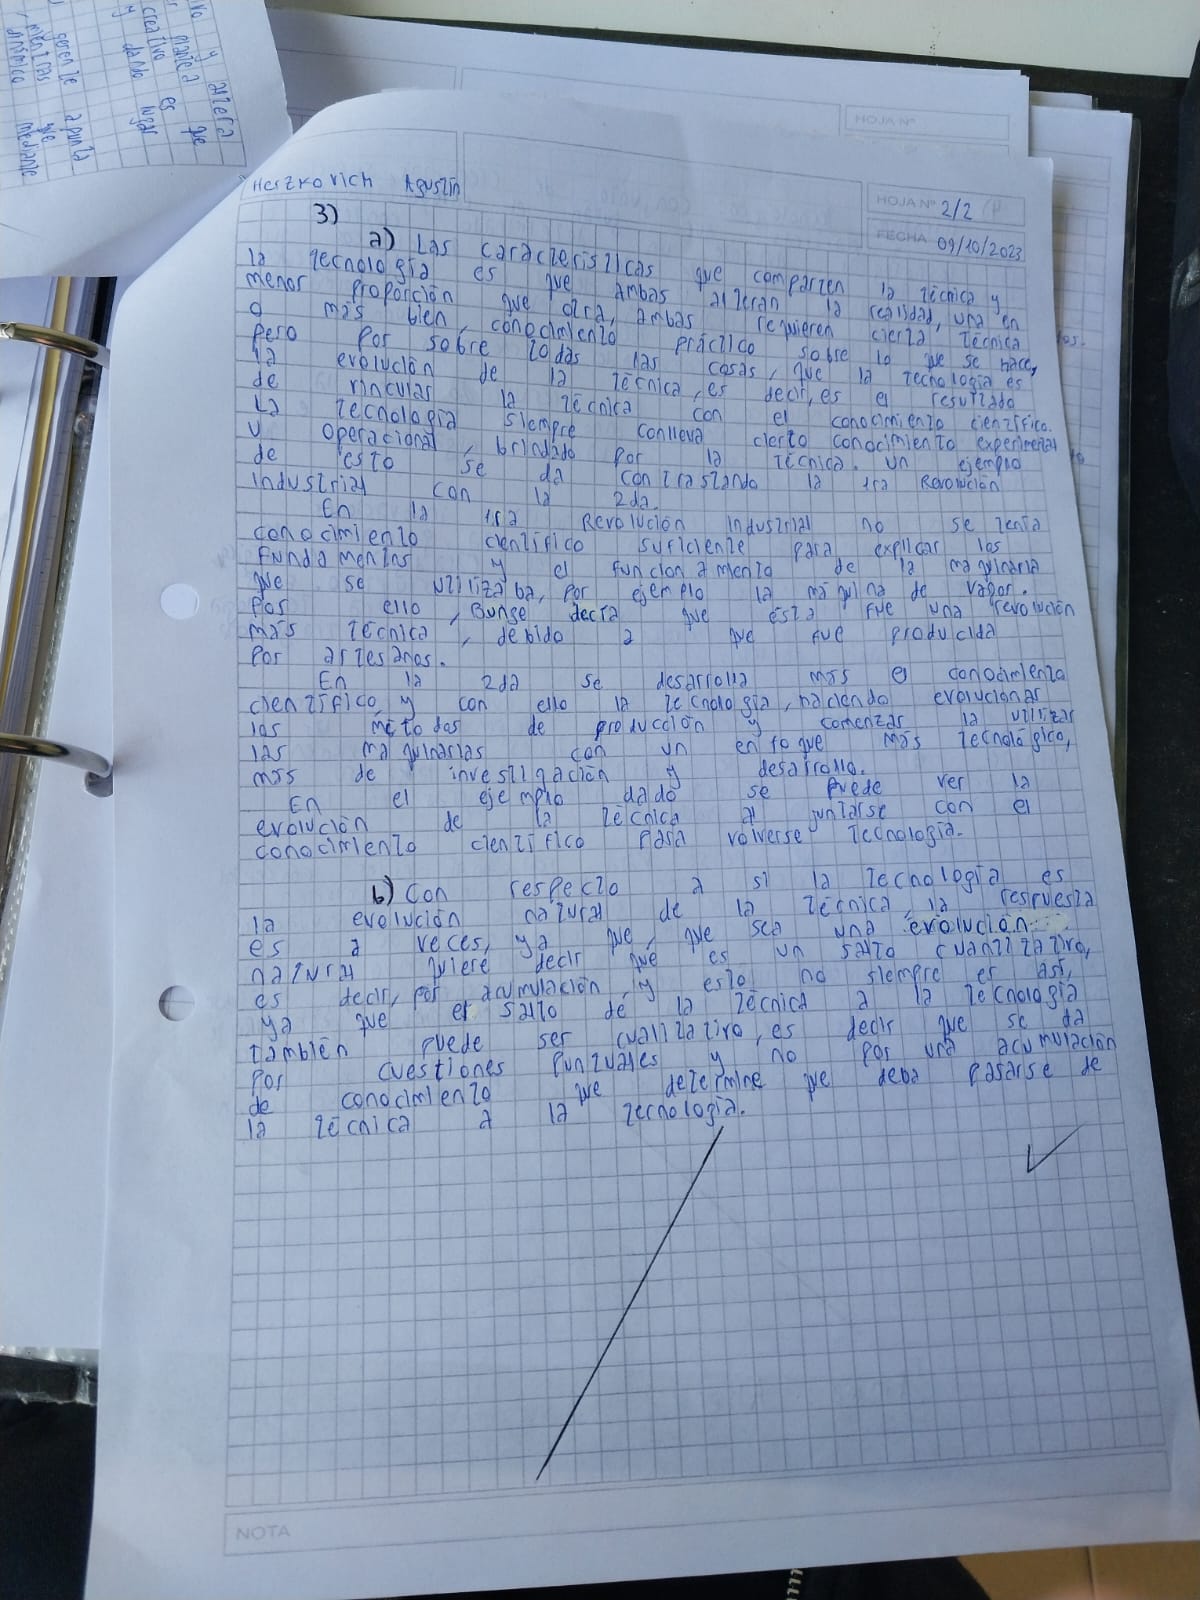 HOJA Nº
Heszkovich Agustín
HOJA Nº 2/2
FECHA 09/10/2023
3)
a) Las características que comparten la técnica y
la tecnología es que ambas alteran la realidad, una en
menor proporción que otra, ambas requieren cierta técnica
o más bien, conocimiento práctico sobre lo que se hace,
pero por sobre todas las cosas, que la tecnología es
la evolución de la técnica, es decir, es el resultado
de vincular la técnica con el conocimiento científico.
La tecnología siempre conlleva cierto conocimiento experimental
y operacional, brindado por la técnica. Un ejemplo
de esto se da contrastando la 1ra Revolución
Industrial con la 2da.
En la 1ra Revolución Industrial no se tenía
conocimiento científico suficiente para explicar los
fundamentos y el funcionamiento de la maquinaria
que se utilizaba, por ejemplo la máquina de vapor.
Por ello, Bunge decía que ésta fue una revolución
más técnica, debido a que fue producida
por artesanos.
En la 2da se desarrolla más el conocimiento
científico, y con ello la tecnología, haciendo evolucionar
los métodos de producción y comenzar la utilizar
las maquinarias con un enfoque más tecnológico,
más de investigación y desarrollo.
En el ejemplo dado se puede ver la
evolución de la técnica al juntarse con el
conocimiento científico para volverse tecnología.
b) Con respecto a si la tecnología es
la evolución natural de la técnica, la respuesta
es a veces, ya que, que sea una evolución
natural quiere decir que es un salto cuantitativo,
es decir, por acumulación, y esto no siempre es así,
ya que el salto de la técnica a la tecnología
también puede ser cualitativo, es decir que se da
por cuestiones puntuales y no por una acumulación
de conocimiento que determine que deba pasarse de
la técnica a la tecnología.
NOTA
altera
que
es
creativo
y dando lugar
gerente apunta
mientras que
dinámico mediante